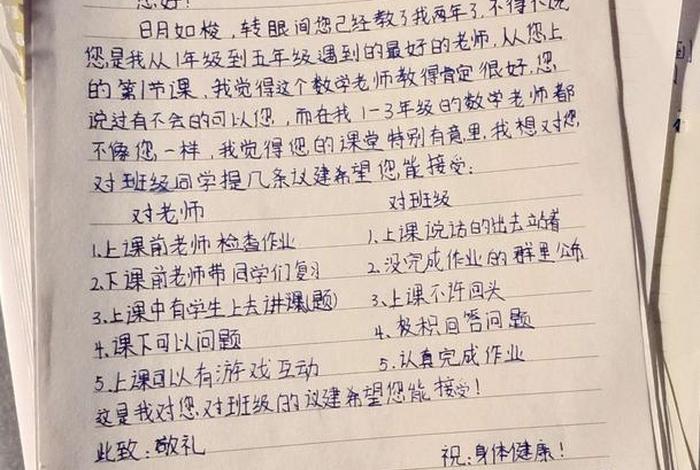 您好！
日月如梭，转眼间您已经教了我两年了，不得不说
您是我从1年级到五年级遇到的最好的老师，从您上
的第1节课，我觉得这个数学老师教得肯定很好，您
说过有不会的可以您，而在我1-3年级的数学老师都
不像您一样，我觉得您的课堂特别有意里，我想对您
对班级同学提几条议建希望您能接受：
对老师 对班级
1.上课前老师检查作业 1.上课说话的出去站着
2.下课前老师带同学们复习 2.没完成作业的群里公布
3.上课中有学生上去讲课(题) 3.上课不许回头
4.课下可以问题 4.极积回答问题
5.上课可以有游戏互动 5.认真完成作业
这是我对您对班级的议建希望您能接受！
此致：敬礼 祝：身体健康！